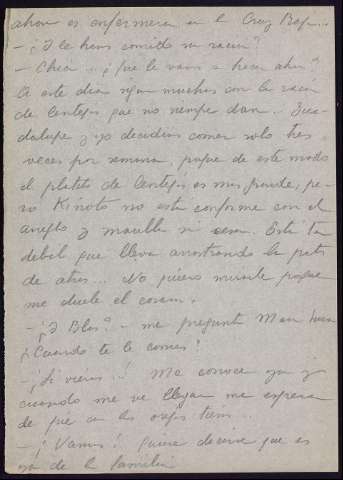 ahora es enfermera en la Cruz Roja...
- ¿Y le han comido su ración?
- Chica... ¿Qué le vamos a hacer ahora?
A este día siguen muchos con la ración
de lentejas que no siempre dan..
y yo decidimos comer solo tres
veces por semana, porque de este modo
el platito de lentejas es mas grande, pe-
ro Kinoto no está conforme con el
arreglo y maulla sin cesar. Está tan
debil que lleva arrastrando la pata
de atras... No quiero mirarle porque
me duele el corazon.
- ¿Y Blas? - me pregunta
¿Cuando te lo comes?
- ¡Si vieras..! Me conoce ya y
cuando me ve llegar me espera
de pie con las orejas tiesas...
- ¡Vamos! Quiere decirse que es
ya de la familia